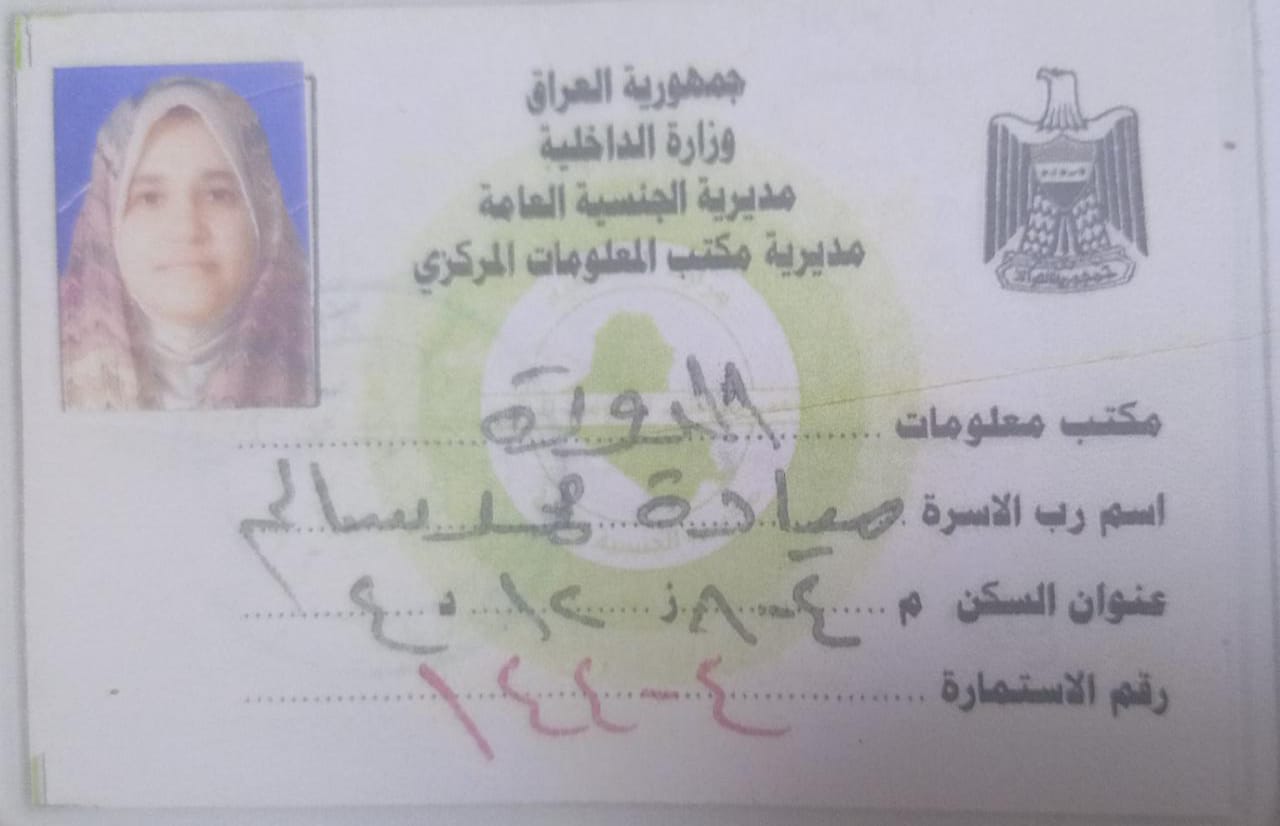 جمهورية العراق
وزارة الداخلية
مديرية الجنسية العامة
مديرية مكتب المعلومات المركزي
مكتب معلومات الدورة
اسم رب الاسرة ميادة محمد سالم
عنوان السكن م ز د
رقم الاستمارة